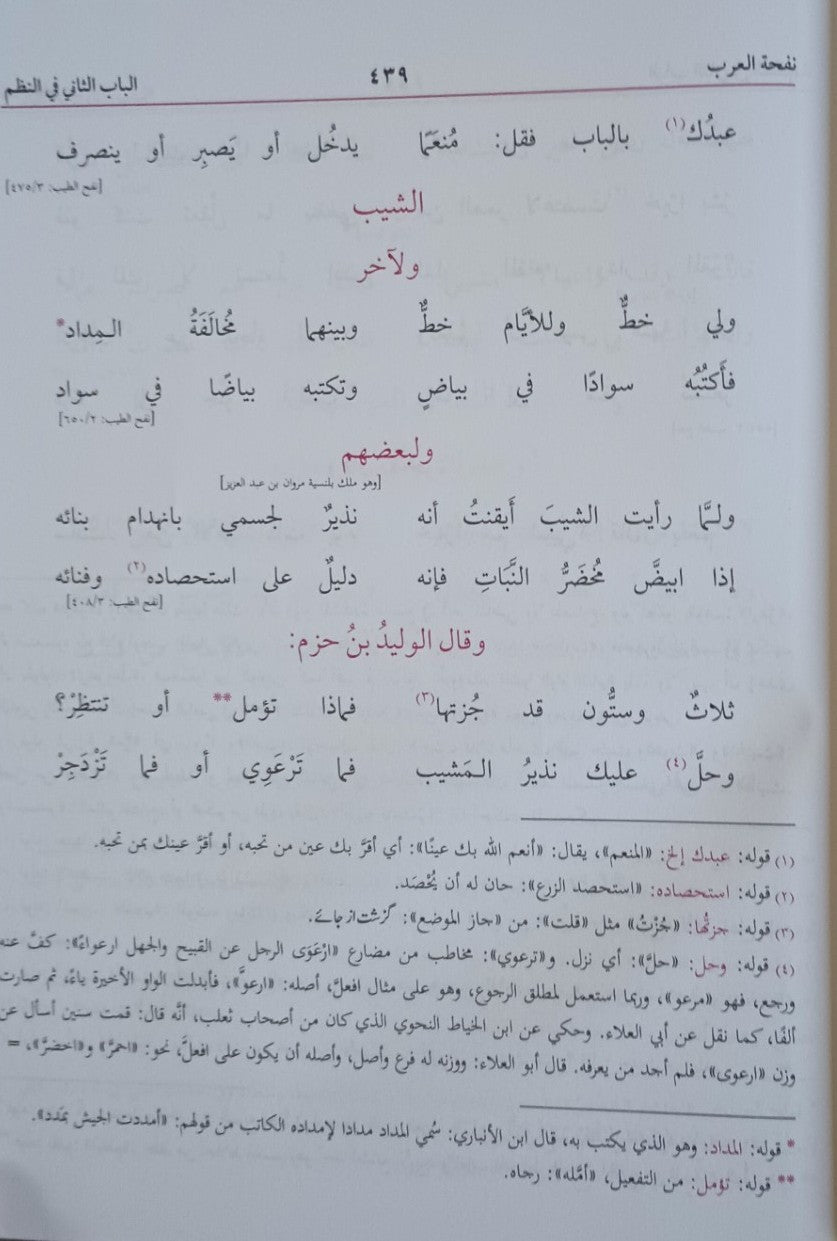 نفحة العرب ٤٣٩ الباب الثاني في النظم
عبدُك(١) بالباب فقل: مُنعَمًا يدخُل أو يَصبِر أو ينصرف
[نفح الطيب: ٤٧٥/٣]
الشيب
ولآخر
ولي خطٌّ وللأيَّام خطٌّ وبينهما مُخالَفَةُ المِداد*
فأَكتُبُه سوادًا في بياضٍ وتكتبه بياضًا في سواد
[نفح الطيب: ٦٥٠/٢]
ولبعضهم
[وهو ملك بلنسية مروان بن عبد العزيز]
ولمَّا رأيت الشيبَ أَيقنتُ أنه نذيرٌ لجسمي بانهدام بنائه
إذا ابيضَّ مُخضَرُّ النَّبَاتِ فإنه دليلٌ على استحصاده(٢) وفنائه
[نفح الطيب: ٤٠٨/٣]
وقال الوليدُ بنُ حزم:
ثلاثٌ وستُّون قد جُزتها(٣) فماذا تؤمل** أو تنتظِرْ؟
وحلَّ(٤) عليك نذيرُ المَشيب فما تَرْعَوِي أو فما تَزْدَجِرْ
(١) قوله: عبدك إلخ: «المنعم»، يقال: «أنعم الله بك عينًا»: أي أقرَّ بك عين من تحبه، أو أقرَّ عينك بمن تحبه.
(٢) قوله: استحصاده: «استحصد الزرع»: حان له أن يُحْصَد.
(٣) قوله: جزتُها: «جُزْتُ» مثل «قلت»: من «جاز الموضع»: گزشت از جائے.
(٤) قوله: وحل: «حلَّ»: أي نزل. و«ترعوي»: مخاطب من مضارع «ارْعَوَى الرجل عن القبيح والجهل ارعواءً»: كفَّ عنه
ورجع، فهو «مرعو»، وربما استعمل لمطلق الرجوع، وهو على مثال افعلَّ، أصله: «ارعوَّ»، فأبدلت الواو الأخيرة ياءً، ثم صارت
ألفًا، كما نقل عن أبي العلاء. وحكي عن ابن الخياط النحوي الذي كان من أصحاب ثعلب، أنَّه قال: قمت سنين أسأل عن
وزن «ارعوى»، فلم أجد من يعرفه. قال أبو العلاء: ووزنه له فرع وأصل، وأصله أن يكون على افعلَّ، نحو: «احمرَّ» و«اخضرَّ»، =
* قوله: المداد: وهو الذي يكتب به، قال ابن الأنباري: سُمي المداد مدادا لإمداده الكاتب من قولهم: «أمددت الجيش بمَدد».
** قوله: تؤمل: من التفعيل، «أمَّله»: رجاه.